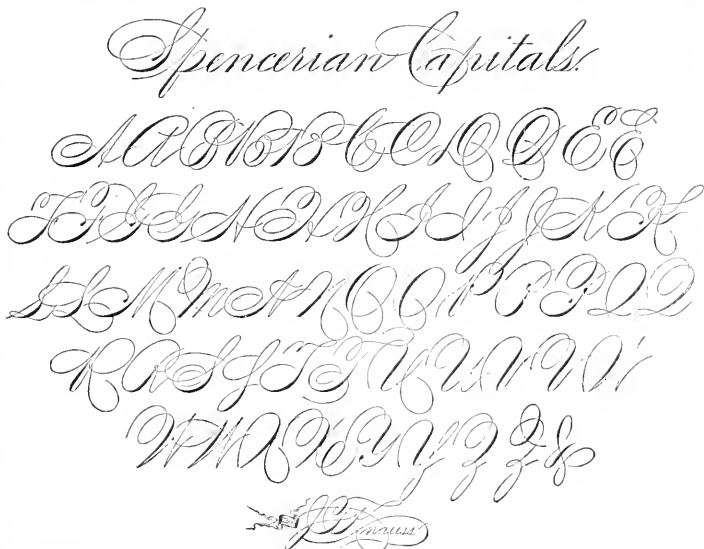 Spencerian Capitals.
A A B B B C C D D E E
F F G G H H H I I J J K K
L L M M N N O O P P P Q Q
R R S S T T U U V V V
W W X X Y Y Z Z &